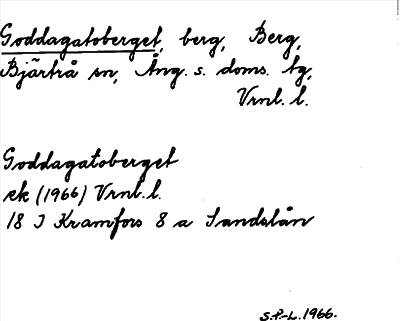 Goddagatoberget, berg, Berg,
Bjärtrå sn, Ång. s. doms. tg,
Vrnl. l.
Goddagatoberget
ek (1966) Vrnl. l.
18 J Kramfors 8 a Sandslån
S.P.-L. 1966.